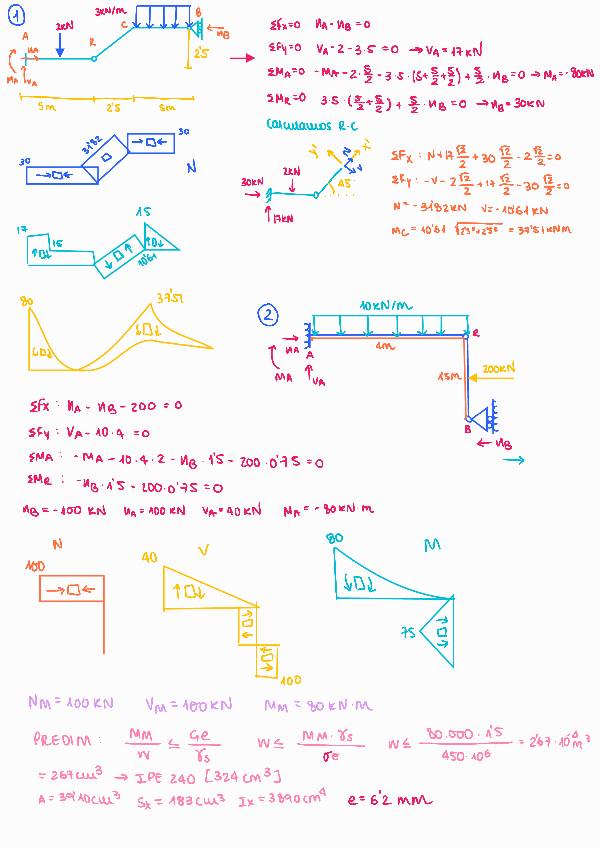 1
3KN/m
B
nB
2KN
C
A
R
nA
MA
VA
2'5
5m
2'5
5m
ΣFx=0 nA-nB=0
ΣFy=0 VA-2-3·5=0 → VA=17KN
ΣMA=0 -MA-2·5/2-3·5·(5+5/2+5/2)+5/2·nB=0 → MA=-80KN
ΣMR=0 3·5·(5/2+5/2)+5/2·nB=0 → nB=30KN
Calculamos R-C
30KN
2KN
17KN
45
y'
N
x'
V
ΣFx: N+17 √2/2+30 √2/2-2 √2/2=0
ΣFy: -V-2 √2/2+17 √2/2-30 √2/2=0
N=-31'82KN V=-10'61KN
Mc=10'61·√2'5²+2'5² = 37'51KNm
30
31'82
30
N
17
15
10'61
15
80
37'51
2
10KN/m
nA
A
MA
VA
4m
R
15m
200KN
B
nB
ΣFx: nA-nB-200=0
ΣFy: VA-10·4=0
ΣMA: -MA-10·4·2-nB·1'5-200·0'75=0
ΣMR: -nB·1'5-200·0'75=0
nB=-100KN nA=100KN VA=40KN MA=-80KN·m
N
100
V
40
100
M
80
75
NM=100KN VM=100KN MM=80KN·m
PREDIM: MM/W ≤ Ge/γs W≤ MM·γs/σe W≤ 80.000·1'5/450·10⁶ =2'67·10⁻⁴m³
=267cm³ → IPE 240 [324cm³]
A=39'10cm³ Sx=183cm³ Ix=3890cm⁴ e=6'2mm